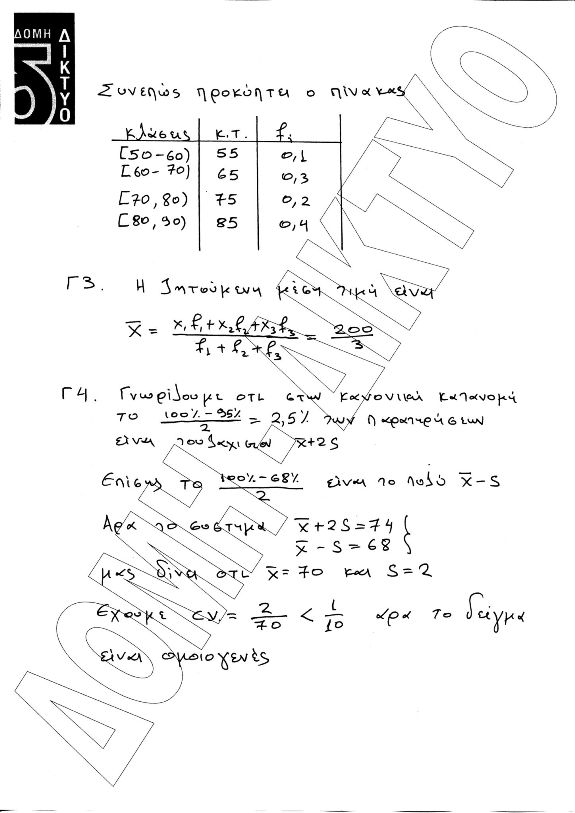 ΔΟΜΗ
ΔΙΚΤΥΟ
Συνεπώς προκύπτει ο πίνακας
Κλάσεις κ.τ. fi
[50-60) 55 0,1
[60-70) 65 0,3
[70,80) 75 0,2
[80,90) 85 0,4
Γ3. Η Ζητούμενη μέση τιμή είναι
x̄ = (x₁f₁+x₂f₂+x₃f₃)/(f₁+f₂+f₃) = 200/3
Γ4. Γνωρίζουμε οτι στην κανονική κατανομή
το (100%-95%)/2 = 2,5% των παρατηρήσεων
είναι τουλάχιστον x̄+2s
Επίσης το (100%-68%)/2 είναι το πολύ x̄-s
Αρα το σύστημα x̄+2s=74
x̄-s=68
μας δίνει οτι x̄=70 και s=2
Εχουμε cv.= 2/70 < 1/10 αρα το δείγμα
είναι ομοιογενές
ΔΟΜΗ ΔΙΚΤΥΟ